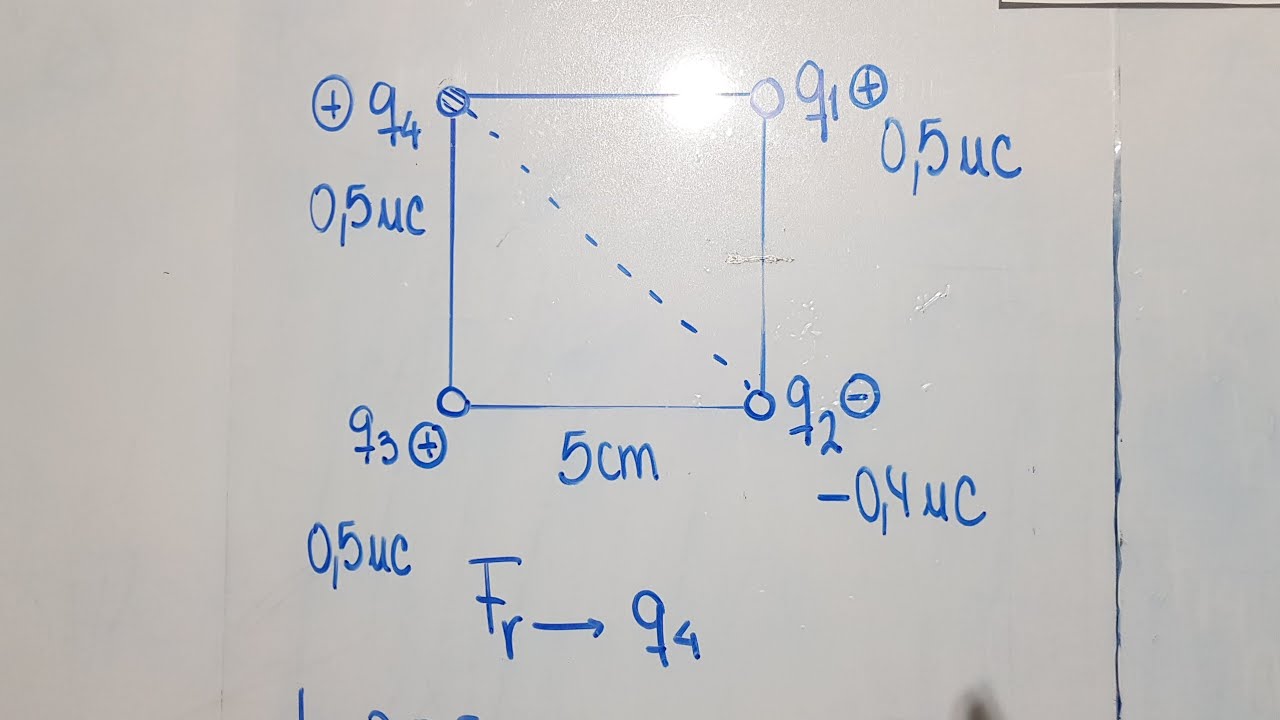 ⊕ q4
q1 ⊕
0,5 μc
0,5 μc
q3 ⊕
5cm
q2 ⊖
-0,4 μc
0,5 μc
Fr → q4